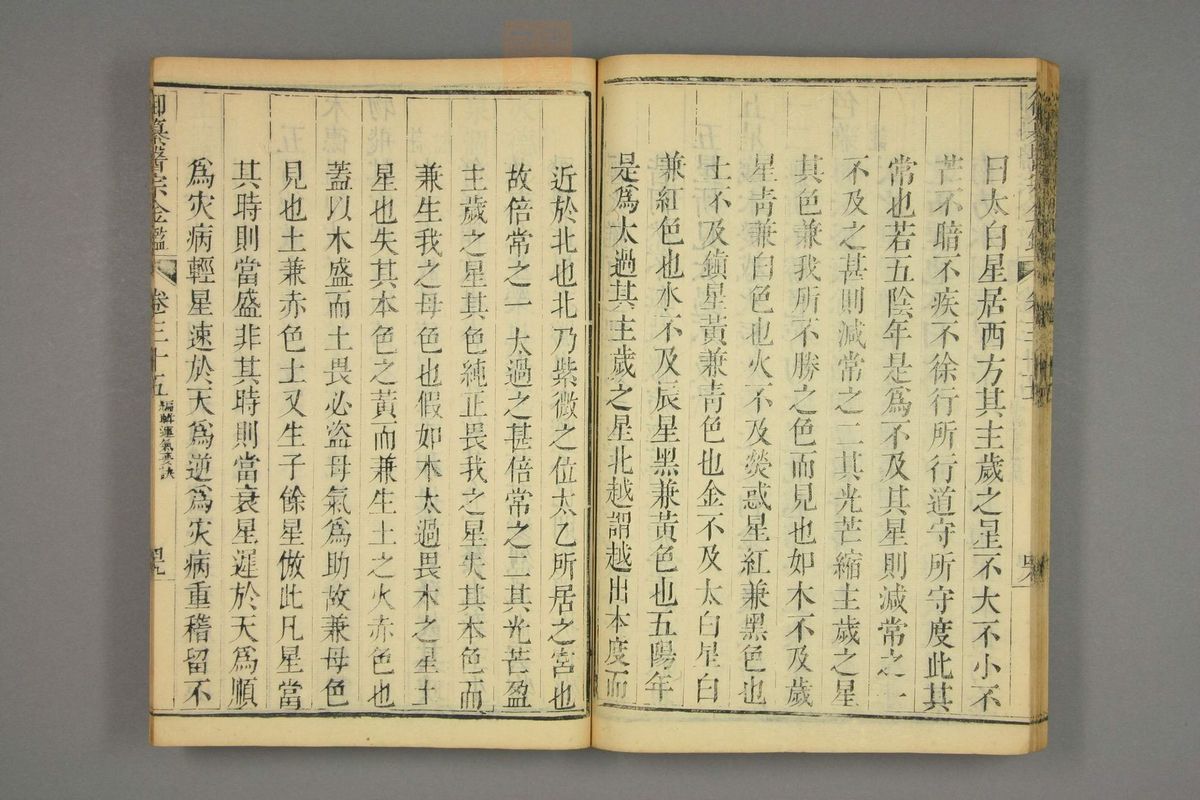 曰太白星居西方其主歲之星不大不小不
芒不暗不疾不徐行所行道守所守度此其
常也若五陰年是爲不及其星則減常之一
不及之甚則減常之二其光芒縮主歲之星
其色兼我所不勝之色而見也如木不及歲
星青兼白色也火不及熒惑星紅兼黑色也
土不及鎮星黃兼青色也金不及太白星白
兼紅色也水不及辰星黑兼黃色也五陽年
是爲太過其主歲之星北越謂越出本度而
近於北也北乃紫微之位太乙所居之宮也
故倍常之一太過之甚倍常之二其光芒盈
主歲之星其色純正畏我之星失其本色而
兼生我之母色也假如木太過畏木之星土
星也失其本色之黃而兼生土之火赤色也
蓋以木盛而土畏必盜母氣爲助故兼母色
見也土兼赤色土又生子餘星倣此凡星當
其時則當盛非其時則當衰星遲於天爲順
爲灾病輕星速於天爲逆爲灾病重稽留不
御纂醫宗金鑑 卷三十五 編輯運氣要訣